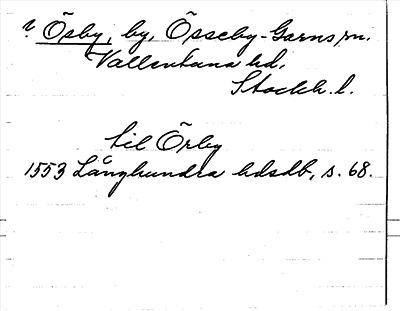 ? Ösby, by, Össeby-Garns sn.
Vallentuna hd.
Stockh. l.
til Örby
1553 Långhundra hdsdb, s. 68.